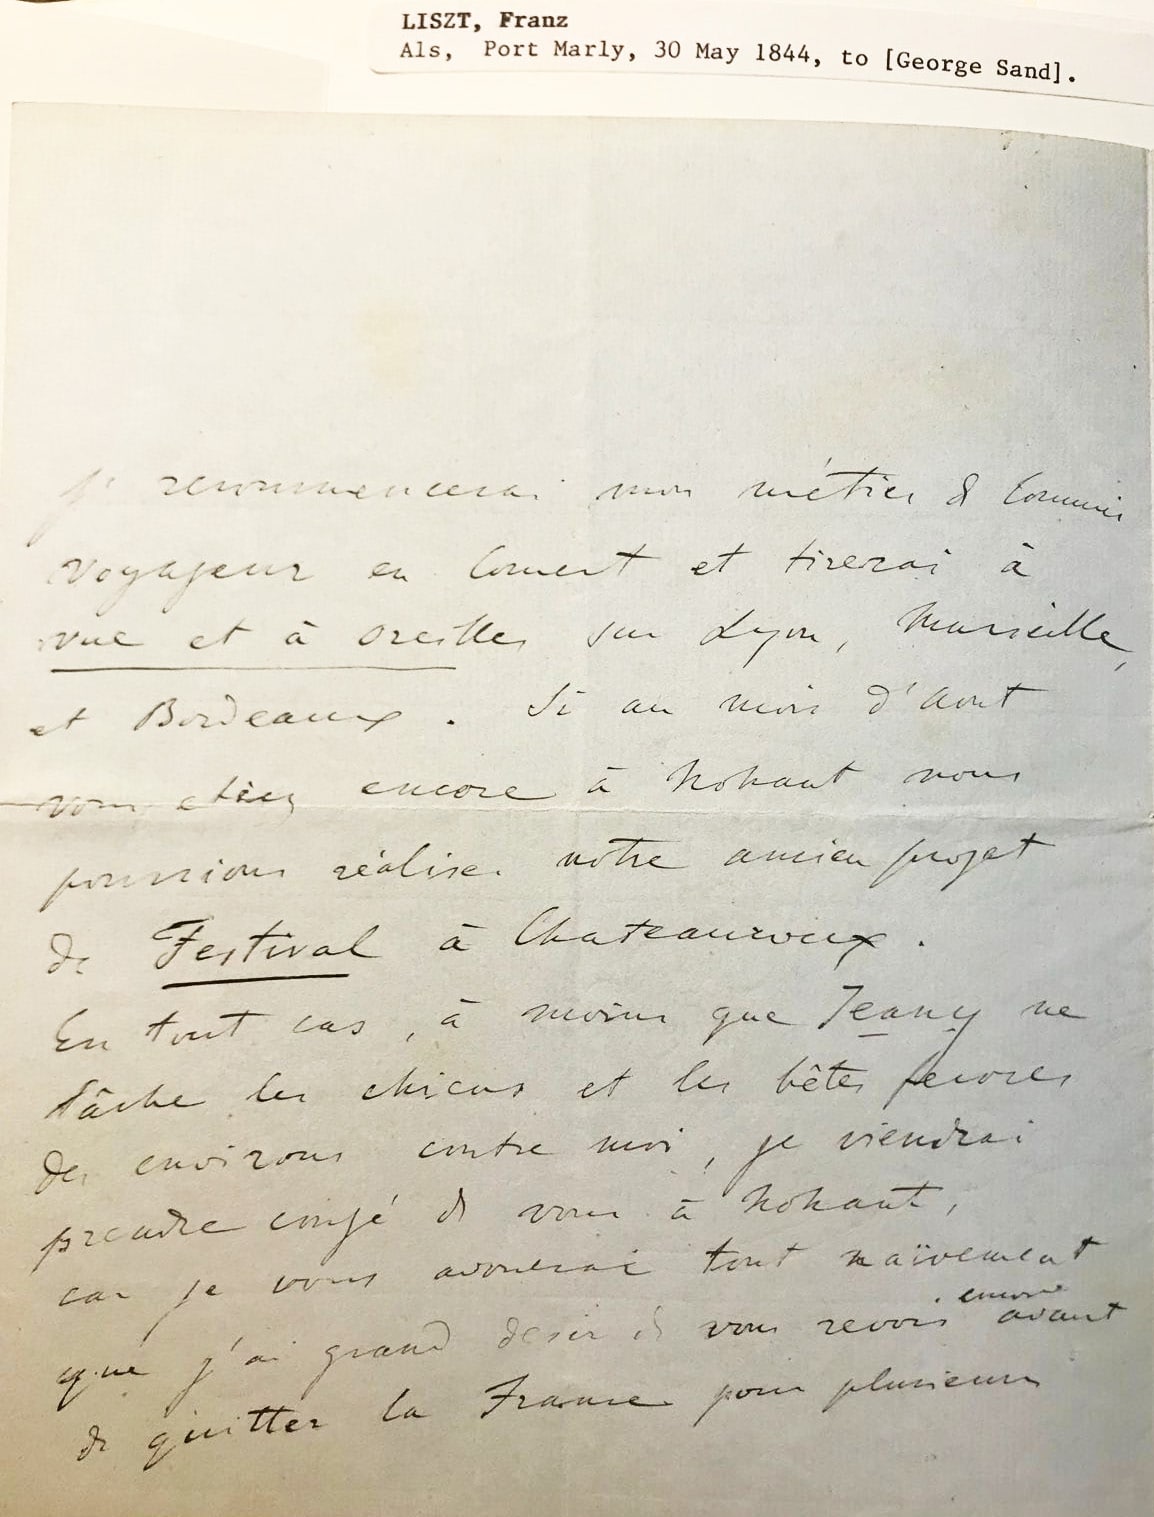 LISZT, Franz
Als, Port Marly, 30 May 1844, to [George Sand].
je recommencerai mon métier de Commis
Voyageur en Concert et tirerai à
vue et à oreilles sur Lyon, Marseille,
et Bordeaux. Si au mois d'Aout
vous etiez encore à Nohant nous
pourrions réaliser notre ancien projet
de Festival à Chateauroux.
En tout cas, à moins que Jeany ne
lâche les chiens et les bêtes feroces
des environs contre moi, je viendrai
prendre congé de vous à Nohant,
car je vous avouerai tout naïvement
encore
que j'ai grand desir de vous revoir avant
de quitter la France pour plusieurs